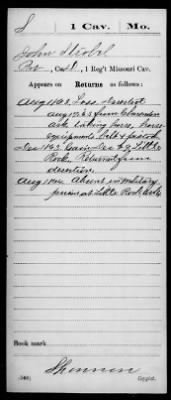 S | 1 Cav. | Mo.
John Stiebel
Pvt, Co. D, 1 Reg't Missouri Cav.
Appears on Returns as follows:
Aug 1863. Loss. Deserted
Aug 17, 63 from Clarendon
Ark taking horse, horse
equipments belt &
Dec 1863. Gain Dec Little
Rock, Return from
desertion.
Aug 1864. Absent in military
prison at Little Rock Ark
Book mark
Shannon
(546) Copyist.